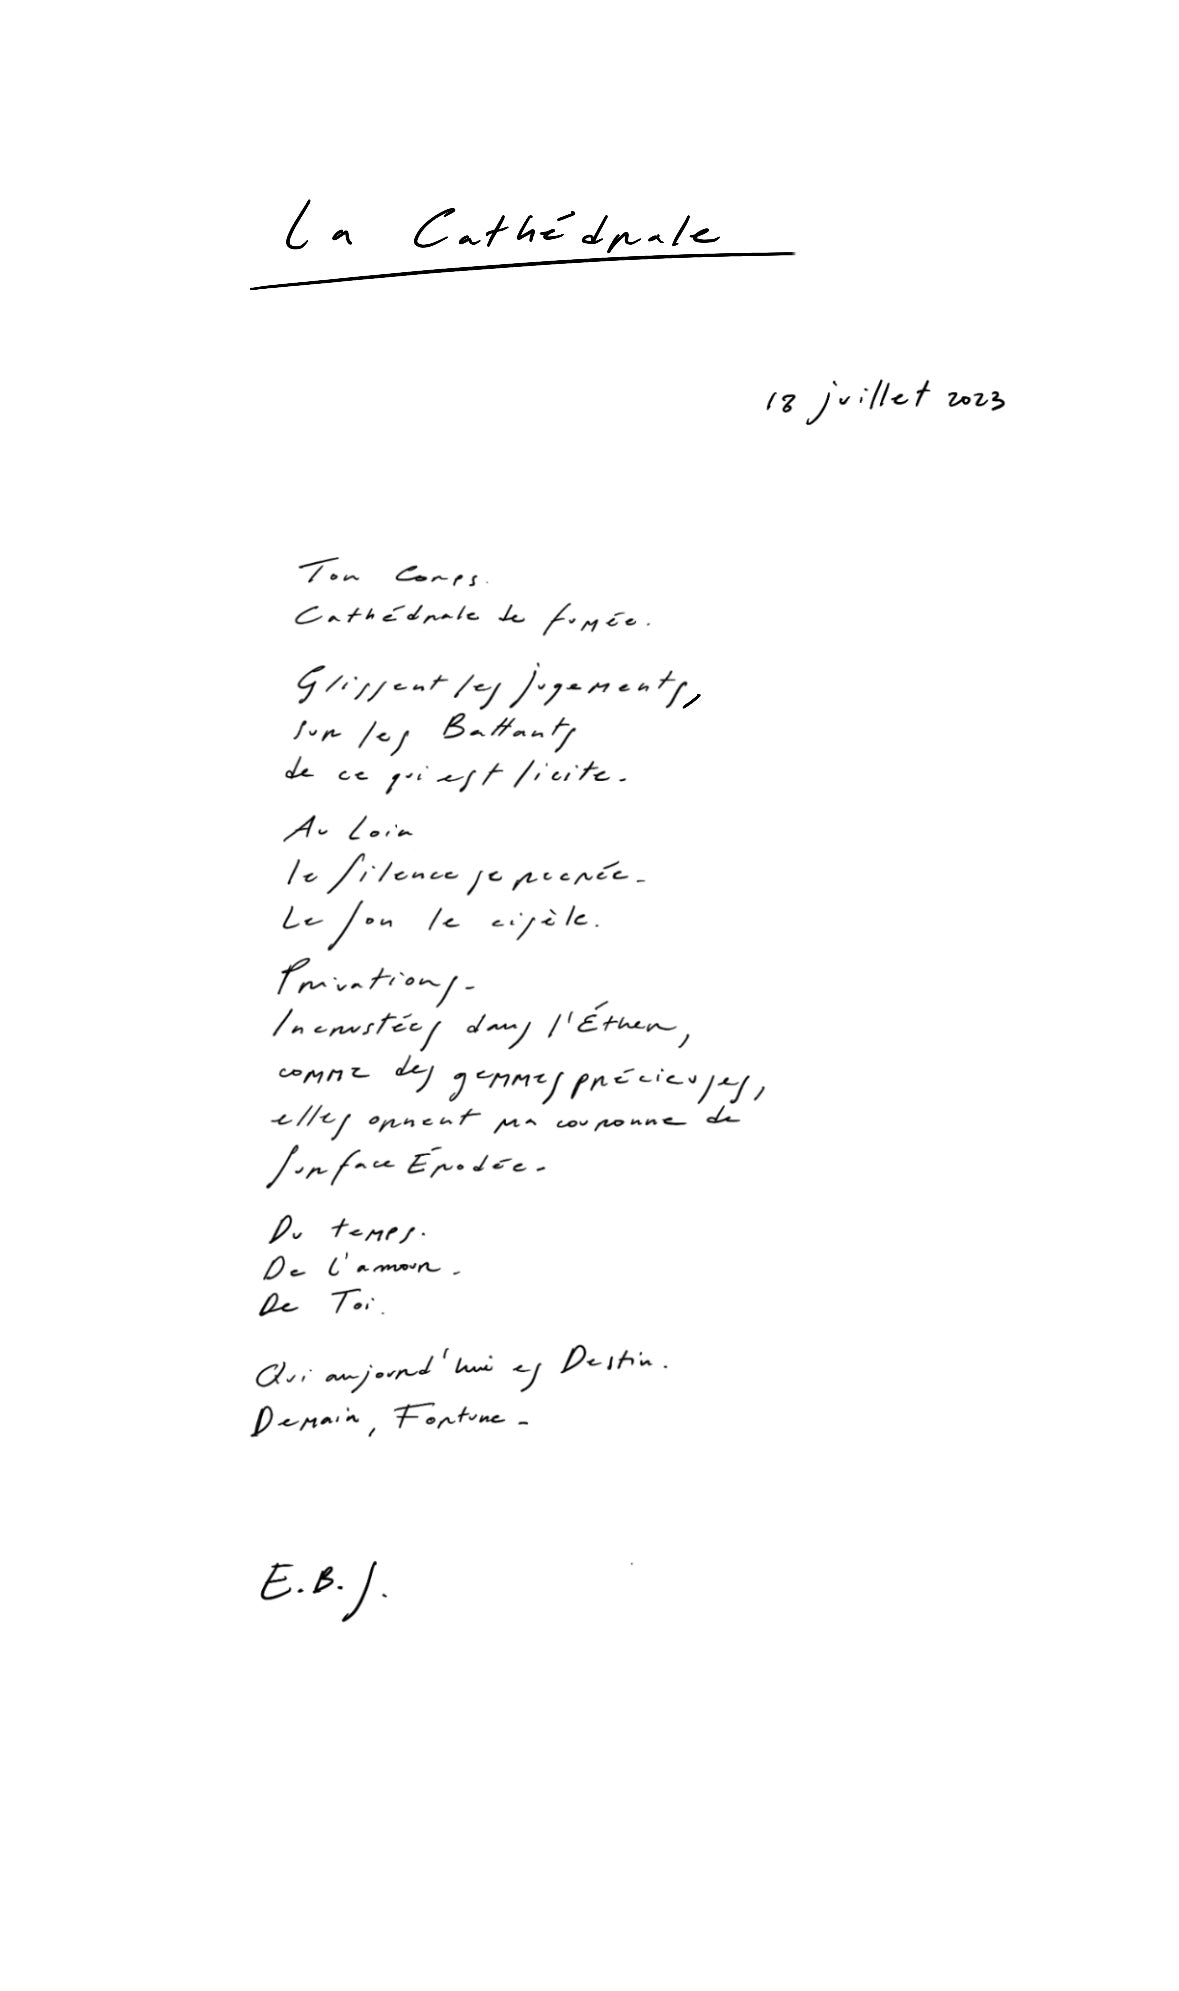 La Cathédrale
18 juillet 2023
Ton Corps.
Cathédrale de fumée.
Glissent les jugements,
sur les Battants
de ce qui est licite.
Au Loin
le Silence se recrée.
Le Son le cisèle.
Privations.
Incrustées dans l'Éther,
comme des gemmes précieuses,
elles ornent ma couronne de
Surface Érodée.
Du temps.
De L'amour.
De Toi.
Qui aujourd'hui es Destin.
Demain, Fortune.
E.B.S.